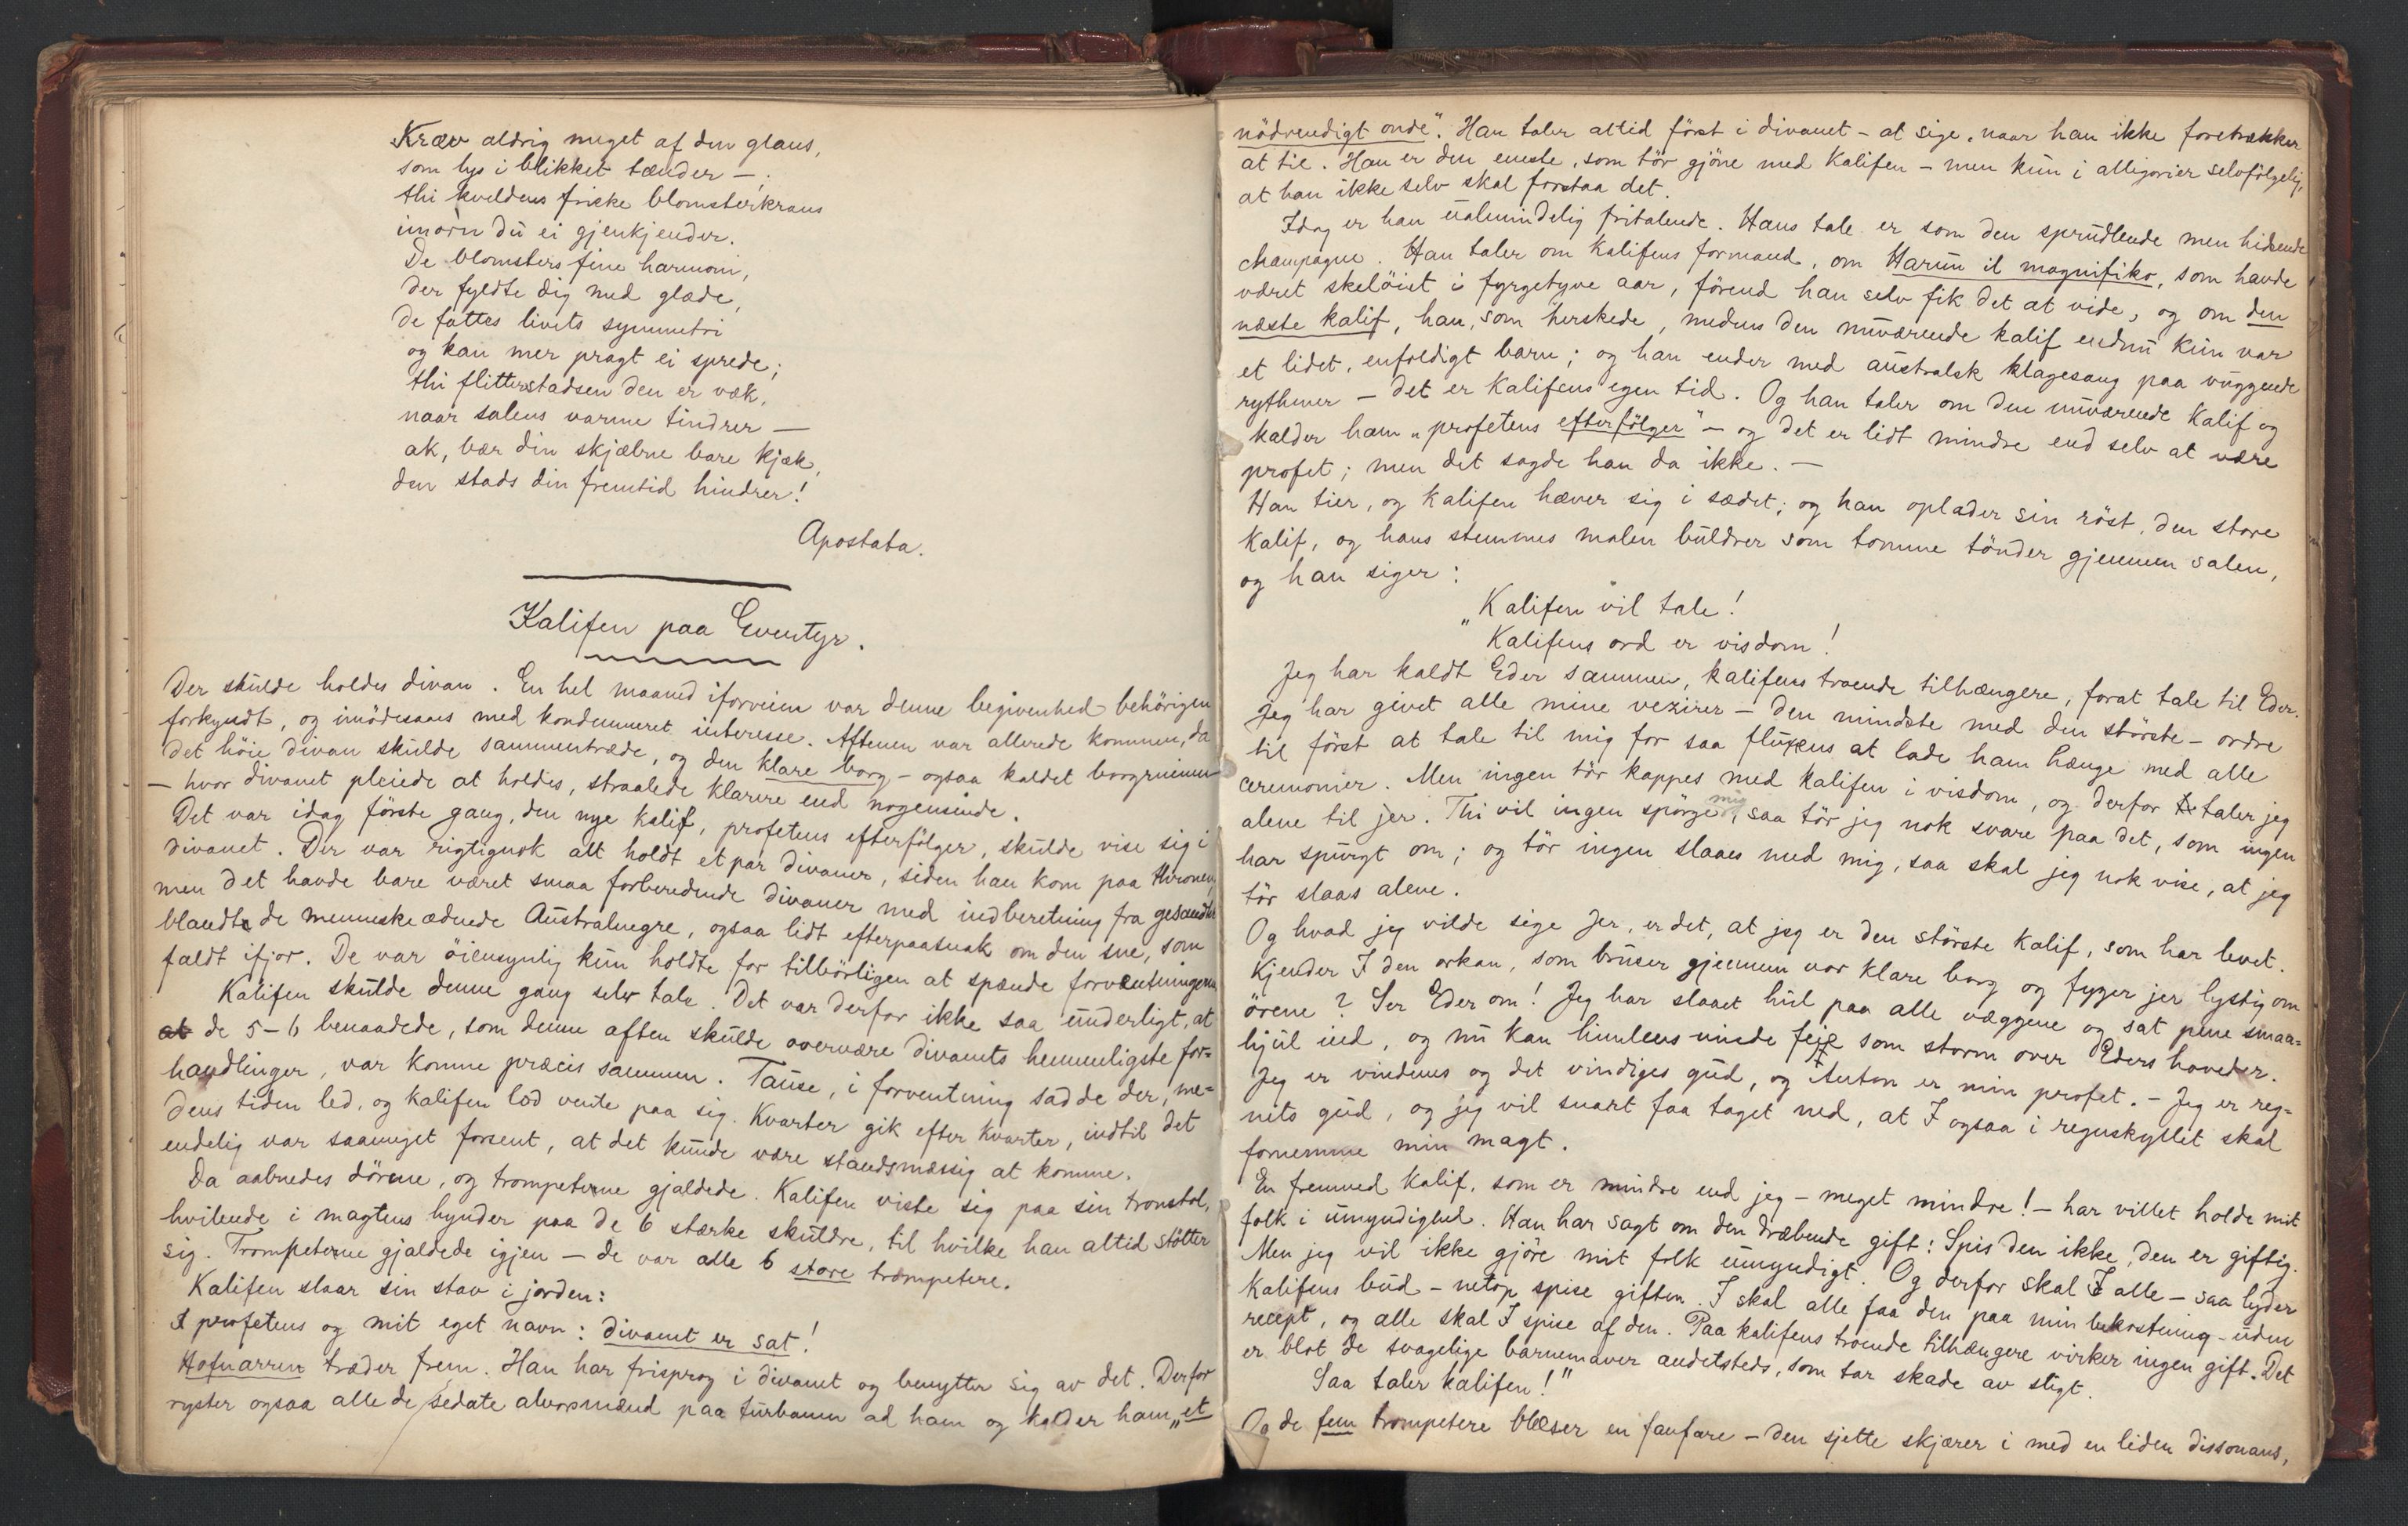 Kræv aldrig meget af den glans,
som lys i blikket tænder —;
thi kveldens friske blomsterkrans
imorn du ei gjenkjender.
De blomsters fine harmoni,
der fyldte dig med glæde,
de fattes livets symmetri
og kan mer pragt ei sprede;
thi flitterstadsen den er væk,
naar salens varme tindrer —
ak, vær din skjæbne bare kjæk,
den stads din fremtid hindrer!
Apostata.
Kalifen paa Eventyr.
Der skulde holdes divan. En hel maaned iforveien var denne begivenhed behörigen
forkyndt, og imödesaaes med kondenseret interesse. Aftenen var allerede kommen, da
det höie divan skulde sammentræde, og den klare borg – ogsaa kaldet borgruinen –
– hvor divanet pleiede at holdes, straalede klarere end nogensinde.
Det var idag förste gang, den nye kalif, profetens efterfölger, skulde vise sig i
divanet. Der var rigtignok alt holdt et par divaner, siden han kom paa thronen,
men det havde bare været smaa forberedende divaner med indberetning fra gesandter
blandt de menneskeædende Australnegre, ogsaa lidt efterpaasnak om den sne, som
faldt ifjor. De var öiensynlig kun holdte for tilbörligen at spænde forventningerne
Kalifen skulde denne gang selv tale. Det var derfor ikke saa underligt, at
at de 5–6 benaadede, som denne aften skulde overvære divanets hemmeligste for=
handlinger, var komne præcis sammen. Tause, i forventning sad de der, me=
dens tiden led, og kalifen lod vente paa sig. Kvarter gik efter kvarter, indtil det
endelig var saameget forsent, at det kunde være standsmæssig at komme.
Da aabnedes dörene, og trompeterne gjaldede. Kalifen viste sig paa sin tronstol,
hvilende i magtens hynder paa de 6 stærke skuldre, til hvilke han altid stötter
sig. Trompeterne gjaldede igjen – de var alle 6 store trompetere.
Kalifen slaar sin stav i jorden:
I profetens og mit eget navn: divanet er sat!
Hofnarren træder frem. Han har frisprog i divanet og benytter sig av det. Derfor
ryster ogsaa alle de sedate alvorsmænd paa turbanen ad ham og kalder ham „et
nödvendigt onde“. Han taler altid först i divanet – at sige, naar han ikke foretrækker
at tie. Han er den eneste, som tör gjöne med Kalifen – men kun i alligorier selvfölgelig,
at han ikke selv skal forstaa det.
Idag er han ualmindelig fritalende. Hans tale er som den sprudlende men hidsende
champagne. Han taler om Kalifens formand, om Harun il magnifiko, som havde
været skelöiet i fyrgetyve aar, förend han selv fik det at vide, og om den
næste kalif, han, som herskede, medens den nuværende kalif endnu kun var
et lidet, enfoldigt barn; og han ender med australsk klagesang paa vuggende
rythmer – det er Kalifens egen tid. Og han taler om den nuværende Kalif og
kalder ham „profetens efterfölger“ – og det er lidt mindre end selv at være
profet; men det sagde han da ikke. –
Han tier, og kalifen hæver sig i sædet; og han oplader sin röst, den store
Kalif, og hans stemmes malm buldrer som tomme tönder gjennem salen,
og han siger:
„Kalifen vil tale!
Kalifens ord er visdom!
Jeg har kaldt Eder sammen, kalifens troende tilhængere, forat tale til Eder.
Jeg har givet alle mine vezirer – den mindste med den störste – ordre
til först at tale til mig for saa fluxens at lade ham hænge med alle
ceremonier. Men ingen tör kappes med kalifen i visdom, og derfor taler jeg
alene til jer. Thi vil ingen spörge mig, saa tör jeg nok svare paa det, som ingen
har spurgt om; og tör ingen slaaes med mig, saa skal jeg nok vise, at jeg
tör slaas alene.
Og hvad jeg vilde sige Jer, er det, at jeg er den störste Kalif, som har levet.
Kjender I den orkan, som bruser gjennem vor klare borg og fyger jer lystig om
örene? Ser Eder om! Jeg har slaaet hul paa alle væggene og sat pene smaa=
hjul ind, og nu kan himlens vinde feje som storm over Eders hoveder.
Jeg er vindenes og det vindiges gud, og Anton er min profet. – Jeg er reg=
nets gud, og jeg vil snart faa taget ned, at I ogsaa i regnskyllet skal
fornemme min magt.
En fremmed Kalif, som er mindre end jeg – meget mindre! – har villet holde mit
folk i umyndighed. Han har sagt om den dræbende gift: Spis den ikke, den er giftig.
Men jeg vil ikke gjöre mit folk umyndigt. Og derfor skal I alle – saa lyder
Kalifens bud – netop spise giften. I skal alle faa den paa min bekostning – uden
recept, og alle skal I spise af den. Paa kalifens troende tilhængere virker ingen gift. Det
er blot de svagelige barnemaver andetsteds, som tar skade av sligt.
Saa taler kalifen!“
Og de fem trompetere blæser en fanfare – den sjette skjærer i med en liden dissonans,